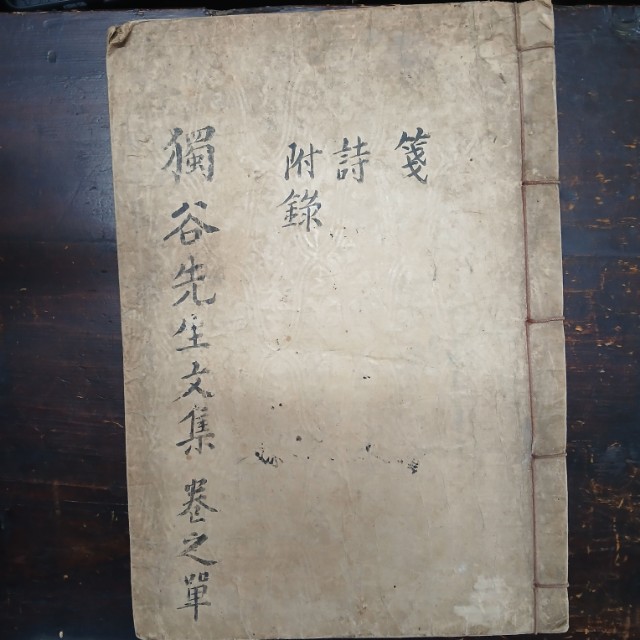 箋
詩
附錄
獨谷先生文集 卷之單